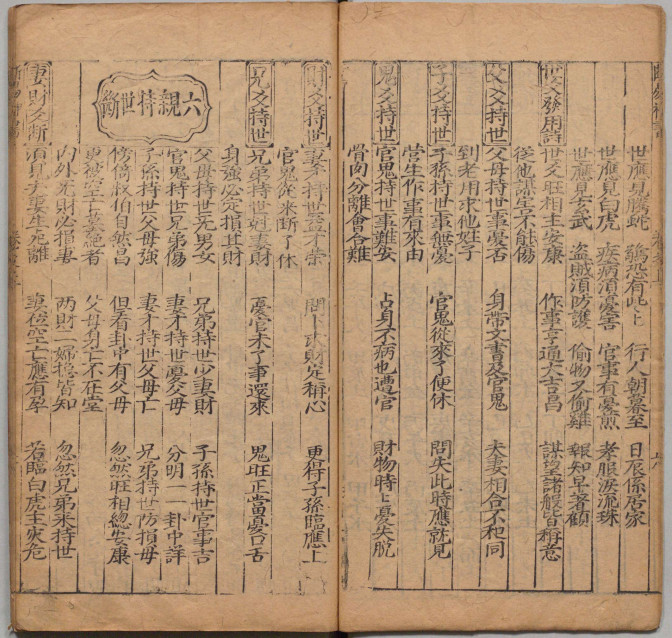 世應見騰蛇 驚恐有此上 行人朝暮至 日辰係居家
世應見白虎 疾病須憂害 官事有憂煎 孝服淚流珠
世應見玄武 盜賊須防護 偷物又偷雞 報知早著顧
爻發用詩 世爻旺相主安康 作事亨通大吉昌 謀望諸般皆稱意
從他謀害不能傷
父爻持世 父母持世事憂否 身帶文書及官鬼 夫妻相合不和同
到老用求他姓子
子爻持世 子孫持世事無憂 官鬼從來了便休 問失此時應就見
營生作事有來由
鬼爻持世 官鬼持世事難安 占身不病也遭官 財物時上憂失脫
骨肉分離會合難
財爻持世 妻才持世益才榮 問卜求財定稱心 更得子孫臨應上
官鬼從來斷了休
兄爻持世 兄弟持世尅妻財 憂官未了事還來 鬼旺正當憂口舌
身強必定損其財
六親持世斷
父母持世尅男女 兄弟持世少妻財 子孫持世官事吉
官鬼持世兄弟傷 妻才持世慮父母 分明一一卦中詳
子孫持世父母強 妻才持世父母亡 兄弟持世防損母
傍倚叔伯自然昌 但看卦中有父母 忽然旺相總安康
更被空亡墓絕者 父母身亡不在堂
內外無財必損妻 兩財一婦總皆知 忽然兄弟來持世
妻財爻斷 須見夫妻生死離 妻 空亡應有孕 若臨白虎主災危